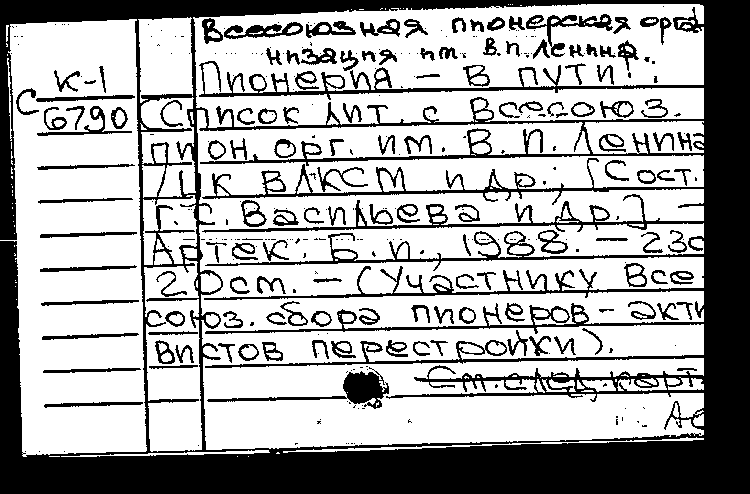 Всесоюзная пионерская орга-
низация им. В.П. Ленина.
К-1
Пионерия - в пути!.
С
6790
(Список лит. с Всесоюз.
пион. орг. им. В. П. Ленина
/ЦК ВЛКСМ и др.; [Сост.
Г. С. Васильева и др.]. —
Артек: Б. и., 1988. — 23с
20см. — (Участнику Все-
союз. сбора пионеров - акти
вистов перестройки).
См. след. карт.
АС